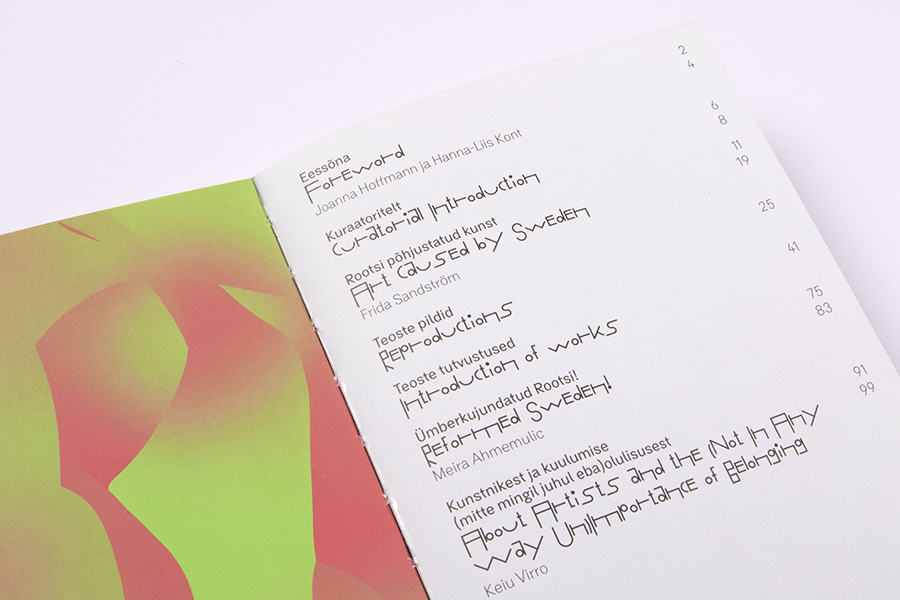 Eessõna 2
Foreword 4
Joanna Hoffmann ja Hanna-Liis Kont
Kuraatoritelt 6
Curatorial Introduction 8
Rootsi põhjustatud kunst 11
Art Caused by Sweden 19
Frida Sandström
Teoste pildid 25
Reproductions
Teoste tutvustused 41
Introduction of works
Ümberkujundatud Rootsi! 75
Reformed Sweden! 83
Meira Ahmemulic
Kunstnikest ja kuulumise 91
(mitte mingil juhul eba)olulisusest 99
About Artists and the (Not In Any
Way Un)Importance of Belonging
Keiu Virro